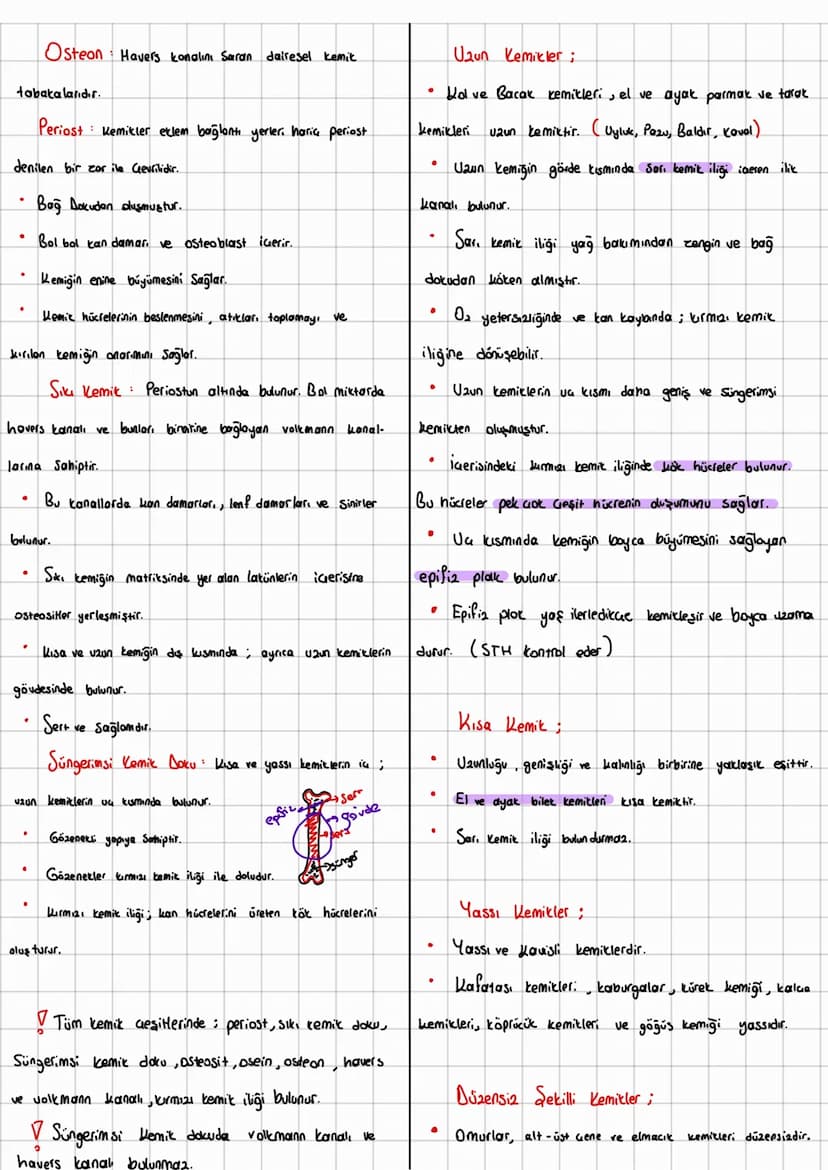 Osteon : Havers kanalını saran dairesel kemik
tabakalarıdır.
Periost : Kemikler eklem bağlantı yerleri hariç periost
denilen bir zar ile çevrilidir.
• Bağ Dokudan oluşmuştur.
• Bol bol kan damarı ve osteoblast içerir.
• Kemiğin enine büyümesini Sağlar.
• Kemik hücrelerinin beslenmesini, atıkları toplamayı ve
kırılan kemiğin onarımını Sağlar.
Sıkı Kemik : Periostun altında bulunur. Bol miktarda
havers kanalı ve bunları birbirine bağlayan volkmann kanal-
larına Sahiptir.
• Bu kanallarda kan damarları, lenf damarları ve sinirler
bulunur.
• Sıkı kemiğin matriksinde yer alan lakünlerin içerisine
osteositler yerleşmiştir.
• Kısa ve uzun kemiğin dış kısmında ; ayrıca uzun kemiklerin
gövdesinde bulunur.
• Sert ve Sağlamdır.
Süngerimsi Kemik Doku : Kısa ve yassı kemiklerin iç ;
uzun kemiklerin uç kısmında bulunur.
• Gözenekli yapıya Sahiptir.
• Gözenekler kırmızı kemik iliği ile doludur.
• Kırmızı kemik iliği ; kan hücrelerini üreten kök hücrelerini
oluşturur.
epifiz
sert
gövde
sarı
sünger
! Tüm kemik çeşitlerinde ; periost, sıkı kemik doku,
Süngerimsi kemik doku, osteosit, osein, osteon, havers
ve volkmann kanalı, kırmızı kemik iliği bulunur.
! Süngerimsi kemik dokuda volkmann kanalı ve
havers kanalı bulunmaz.
Uzun Kemikler ;
• Kol ve Bacak kemikleri, el ve ayak parmak ve tarak
kemikleri uzun kemiktir. (Uyluk, Pazu, Baldır, Kaval)
• Uzun kemiğin gövde kısmında Sarı kemik iliği içeren ilik
kanalı bulunur.
• Sarı kemik iliği yağ bakımından zengin ve bağ
dokudan köken almıştır.
• O₂ yetersizliğinde ve kan kaybında ; kırmızı kemik
iliğine dönüşebilir.
• Uzun kemiklerin uç kısmı daha geniş ve Süngerimsi
kemikten oluşmuştur.
• İçerisindeki kırmızı kemik iliğinde kök hücreler bulunur.
Bu hücreler pek çok çeşit hücrenin oluşumunu sağlar.
• Uç kısmında kemiğin boyca büyümesini sağlayan
epifiz plak bulunur.
• Epifiz plak yaş ilerledikçe kemikleşir ve boyca uzama
durur. (STH kontrol eder)
Kısa Kemik ;
• Uzunluğu, genişliği ve kalınlığı birbirine yaklaşık eşittir.
• El ve ayak bilek kemikleri kısa kemiktir.
• Sarı kemik iliği bulundurmaz.
Yassı Kemikler ;
• Yassı ve kavisli kemiklerdir.
• Kafatası kemikleri, kaburgalar, kürek kemiği, kalça
kemikleri, köprücük kemikleri ve göğüs kemiği yassıdır.
Düzensiz Şekilli Kemikler ;
• Omurlar, alt-üst çene ve elmacık kemikleri düzensizdir.